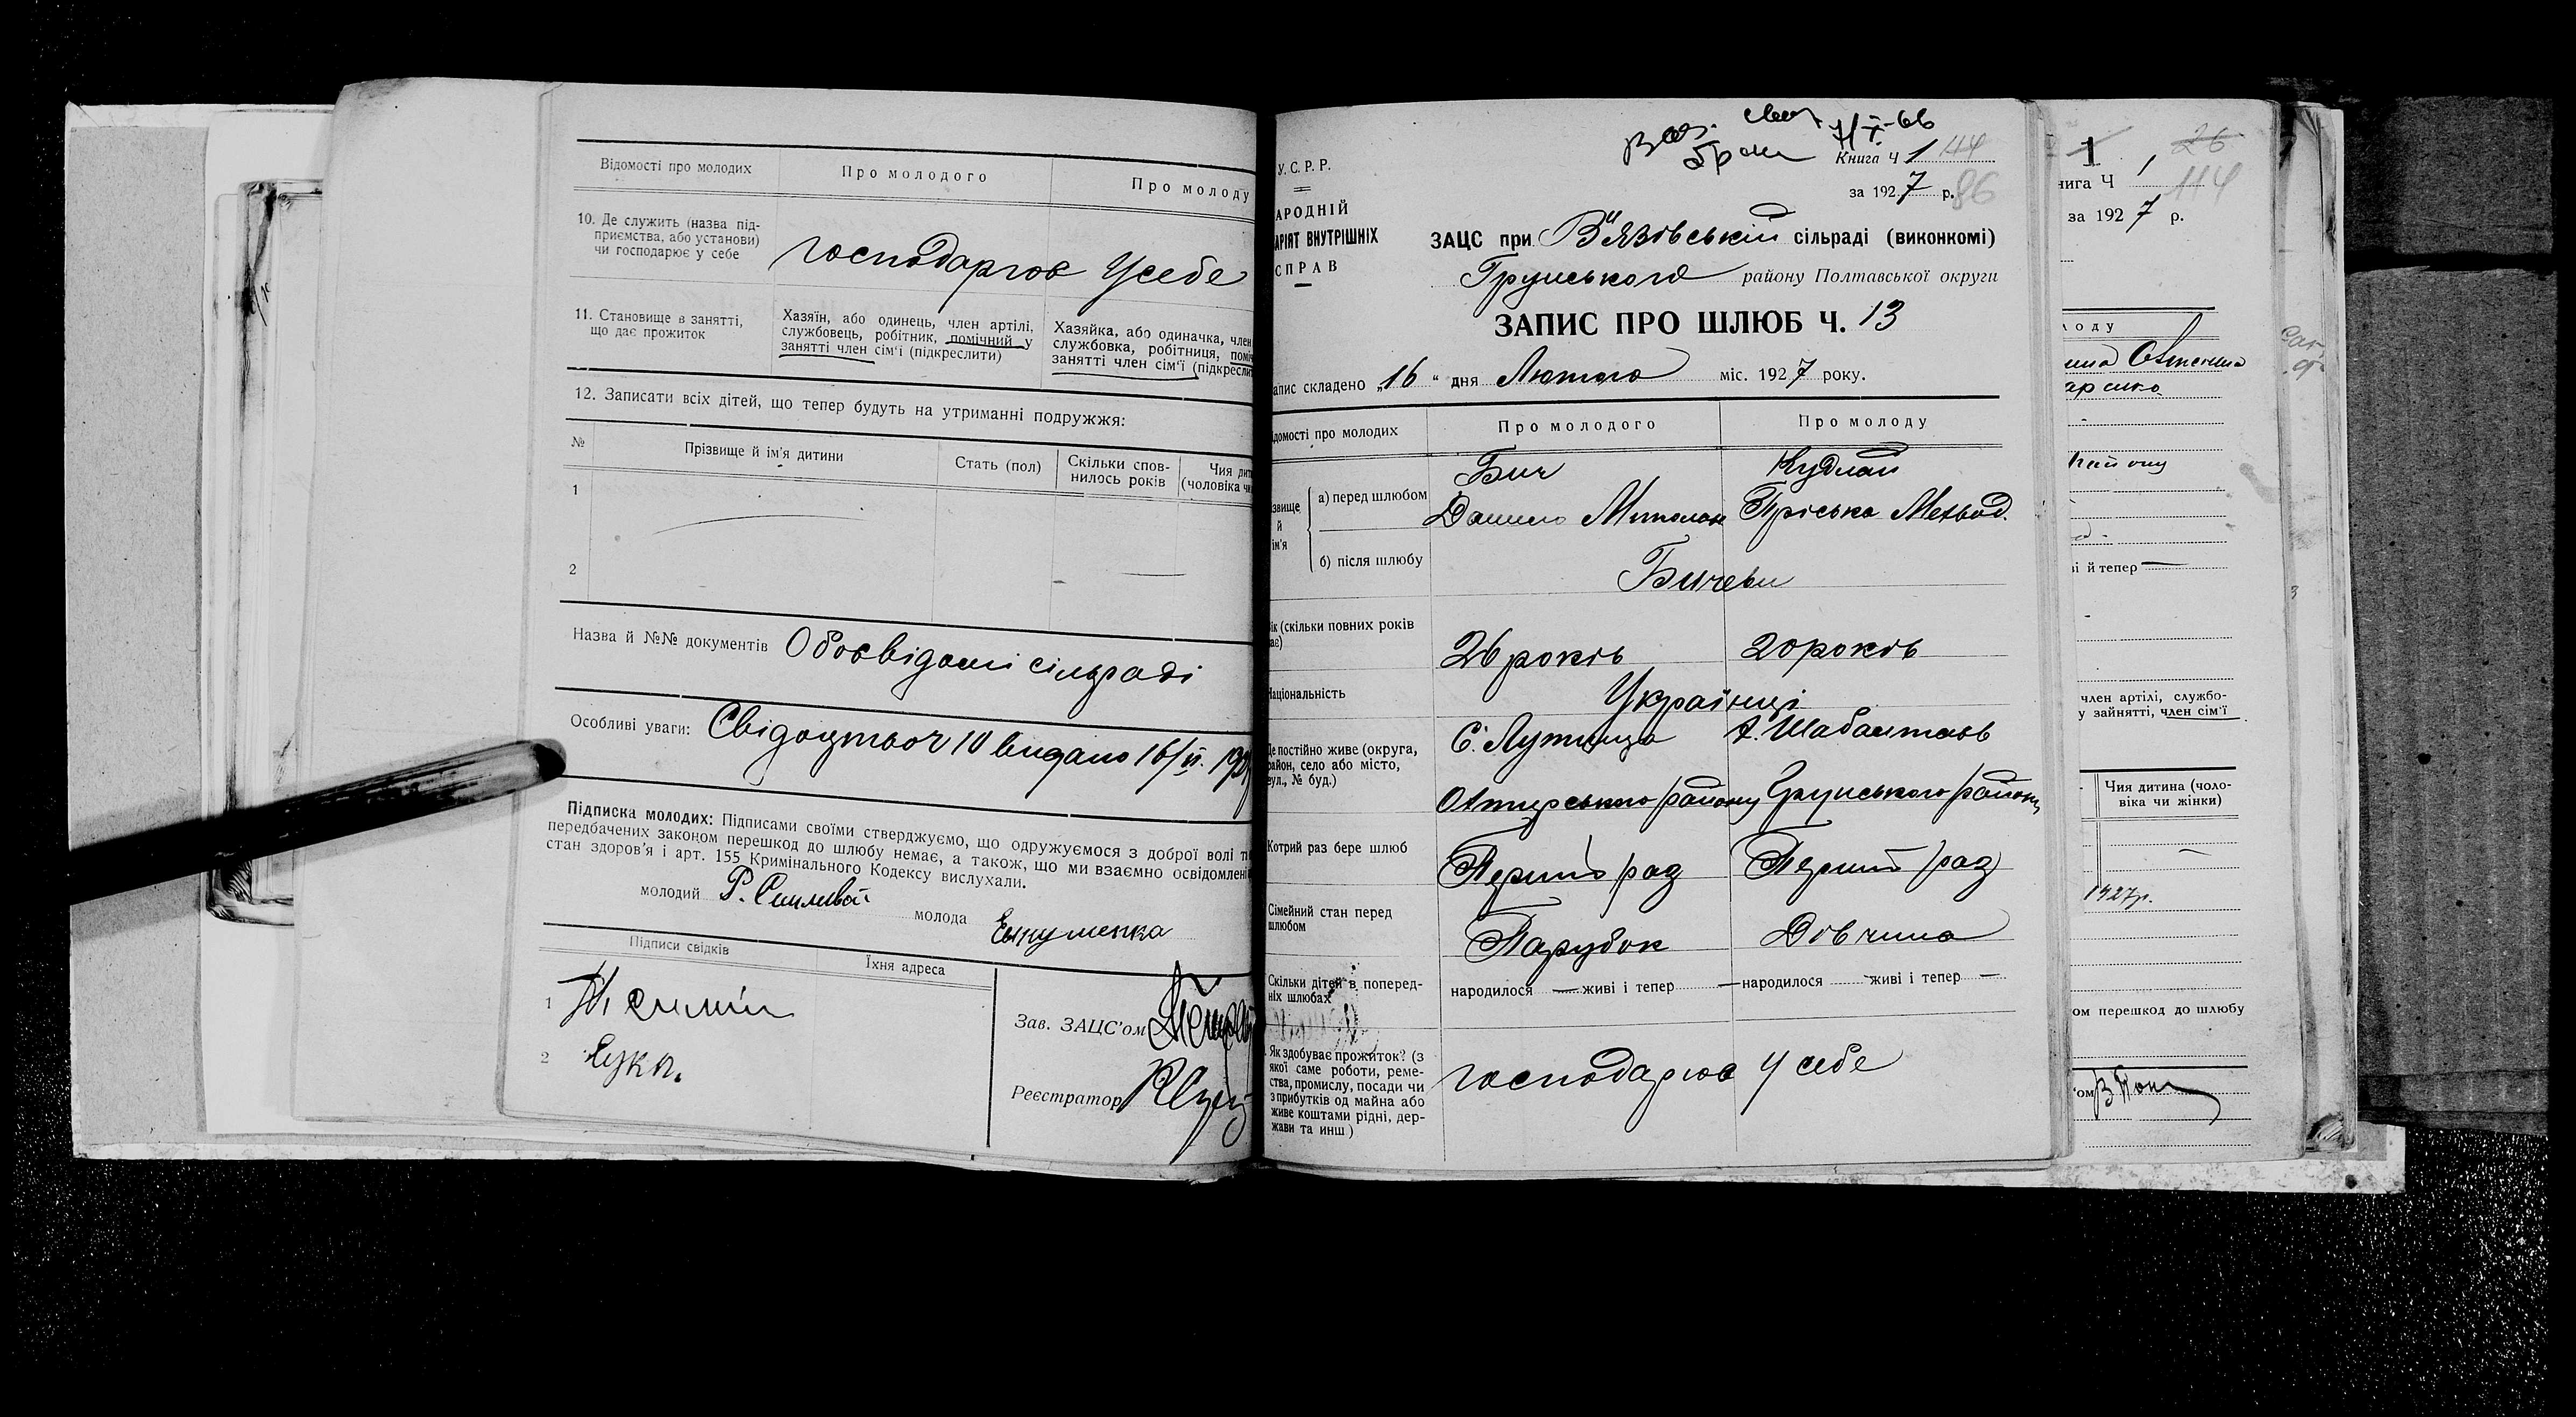 Відомості про молодих
Про молодого
Про молоду
10. Де служить (назва під-
приємства, або установи)
чи господарює у себе
господарює Усебе
11. Становище в занятті,
що дає прожиток
Хазяїн, або одинець, член артілі,
службовець, робітник, помічний у
занятті член сім'ї (підкреслити)
Хазяйка, або одиначка, член
службовка, робітниця, поміч
занятті член сім'ї (підкресли
12. Записати всіх дітей, що тепер будуть на утриманні подружжя:
№
Прізвище й ім'я дитини
Стать (пол)
Скільки спов-
нилось років
Чия дит
(чоловіка чи
1
2
Назва й №№ документів
сільраді
Особливі уваги: Свідоцтво ч 10 видано 16/II. 192
Підписка молодих: Підписами своїми стверджуємо, що одружуємося з доброї волі т
передбачених законом перешкод до шлюбу немає, а також, що ми взаємно освідомлені
стан здоров'я і арт. 155 Кримінального Кодексу вислухали.
молодий
молода
Підписи свідків
Їхня адреса
1
2
Зав. ЗАЦС'ом
Реєстратор
7/X-66
брак
У.С.Р.Р.
Книга ч 1 114
за 1927 р. 86
АРОДНІЙ
АРІЯТ ВНУТРІШНІХ
СПРАВ
ЗАЦС при В'язівській сільраді (виконкомі)
Грунського району Полтавської округи
ЗАПИС ПРО ШЛЮБ Ч. 13
апис складено „16“ дня Лютого міс. 1927 року.
домості про молодих
Про молодого
Про молоду
звище
й
ім'я
а) перед шлюбом
Бич
Данило
Кудлай
Пріська Мехвод.
б) після шлюбу
Бичеви
ік (скільки повних років
ає)
26 років
20 років
Національність
Українці
Де постійно живе (округа,
район, село або місто,
вул., № буд.)
С. Лутища
Х. Шабалтаєв
Охтирського району
Грунського району
Котрий раз бере шлюб
Перший раз
Перший раз
Сімейний стан перед
шлюбом
Парубок
Дівчина
Скільки дітей в поперед-
ніх шлюбах
народилося — живі і тепер —
народилося — живі і тепер —
Як здобуває прожиток? (з
якої саме роботи, реме-
ства, промислу, посади чи
з прибутків од майна або
живе коштами рідні, дер-
жави та инш)
господарює у себе
1
26
нига Ч 1
114
за 1927 р.
лоду
району
і й тепер —
член артілі, службо-
у зайнятті, член сім'ї
Чия дитина (чоло-
віка чи жінки)
1927р.
ом перешкод до шлюбу
'ом